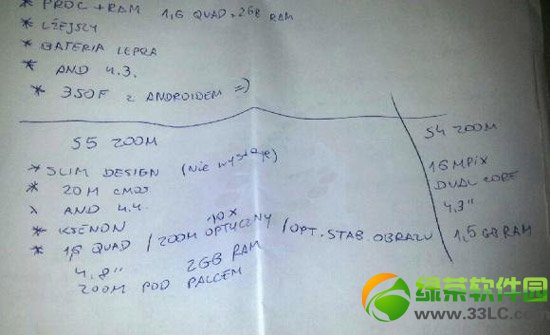 * PROC + RAM 1,6 QUAD + 2GB RAM
* LŻEJSZY
* BATERIA LEPSZA
* AND 4.3.
* 350F z ANDROIDEM =)
S5 ZOOM
* SLIM DESIGN (Nie wystaje)
* 20M CMOS
* AND 4.4.
* KSENON
* 1,6 QUAD / 10x ZOOM OPTYCZNY / OPT. STAB. OBRAZU
4.8" 2GB RAM
ZOOM POD PALCEM
S4 ZOOM
16 MPIX
DUAL CORE
4,3"
1,5 GB RAM
绿茶软件园
www.33LC.com